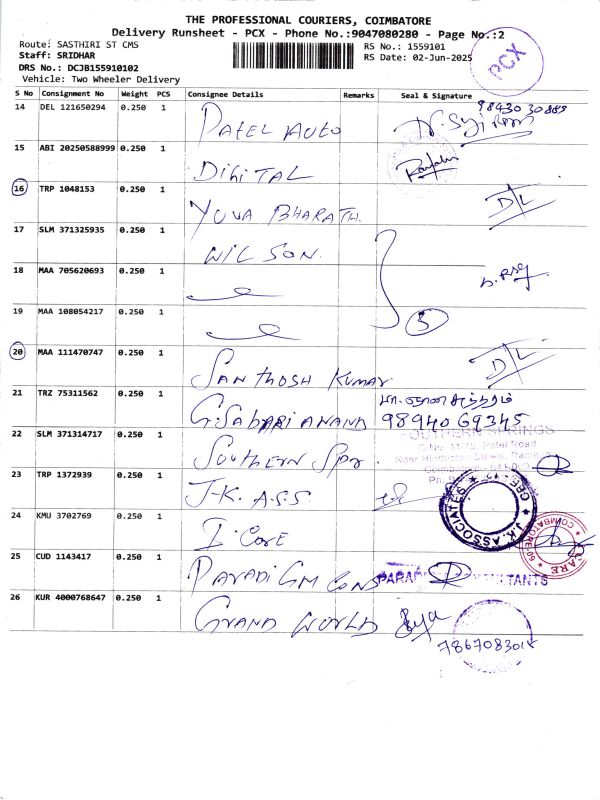 THE PROFESSIONAL COURIERS, COIMBATORE
Delivery Runsheet - PCX - Phone No.:9047080280 - Page No.:2
Route: SASTHIRI ST CMS
RS No.: 1559101
Staff: SRIDHAR
RS Date: 02-Jun-2025
DRS No.: DCJB155910102
Vehicle: Two Wheeler Delivery
PCX
S No Consignment No Weight PCS Consignee Details Remarks Seal & Signature
14 DEL 121650294 0.250 1 PATEL AUTO 98430 30889
15 ABI 20250588999 0.250 1 DIGITAL
16 TRP 1048153 0.250 1 YUVA BHARATH. D/L
17 SLM 371325935 0.250 1 WILSON.
18 MAA 705620693 0.250 1
19 MAA 108054217 0.250 1 3
20 MAA 111470747 0.250 1 SANTHOSH KUMAR D/L
21 TRZ 75311562 0.250 1 G.SABARI ANAND 98940 69345
22 SLM 371314717 0.250 1 SOUTHERN SPR SOUTHERN SPRINGS
23 TRP 1372939 0.250 1 J.K. ASS J.K. ASSOCIATES
24 KMU 3702769 0.250 1 I CARE COIMBATORE
25 CUD 1143417 0.250 1 PARADIGM CONS
26 KUR 4000768647 0.250 1 GRAND WORLD
7867083018